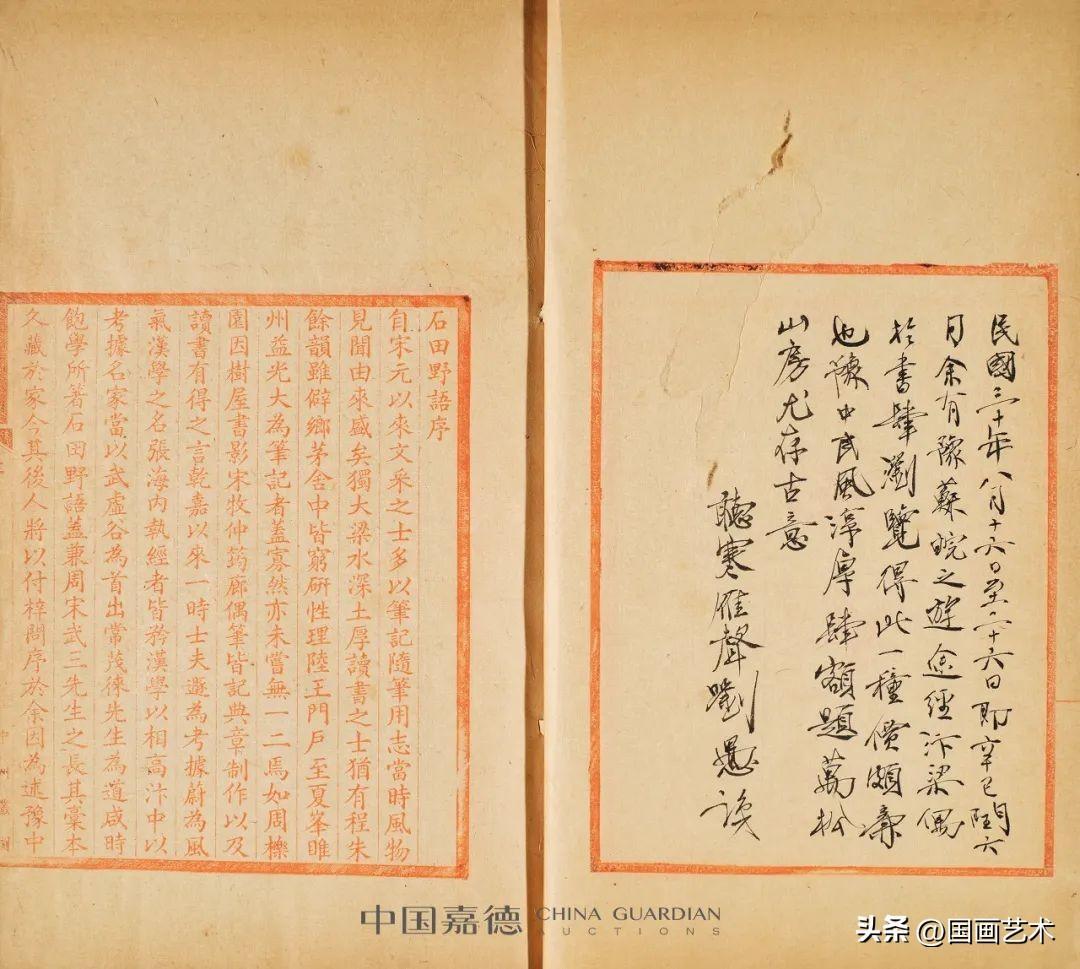 民國三十年八月十六日至二十六日即辛巳閏六
月余有豫蘇皖之遊途經汴梁偶
於書肆瀏覽得此一種價頗廉
也豫中民風淳厚肆額題萬松
山房尤存古意
聽寒雁聲劉識
石田野語序
自宋元以來文采之士多以筆記隨筆用志當時風物
見聞由來盛矣獨大梁水深土厚讀書之士猶有程朱
餘韻雖僻鄉茅舍中皆窮研性理陸王門戶至夏峯睢
州益光大為筆記者蓋寡然亦未嘗無一二焉如周櫟
園因樹屋書影宋牧仲筠廊偶筆皆記典章制作以及
讀書有得之言乾嘉以來一時士夫遞為考據蔚為風
氣漢學之名張海內執經者皆矜漢學以相高汴中以
考據名家當以武虛谷為首出常茂徠先生為道咸時
飽學所著石田野語蓋兼周宋武三先生之長其稾本
久藏於家今其後人將以付梓問序於余因為述豫中
中州叢刻
中国嘉德 CHINA GUARDIAN
AUCTIONS
头条 @国画艺术